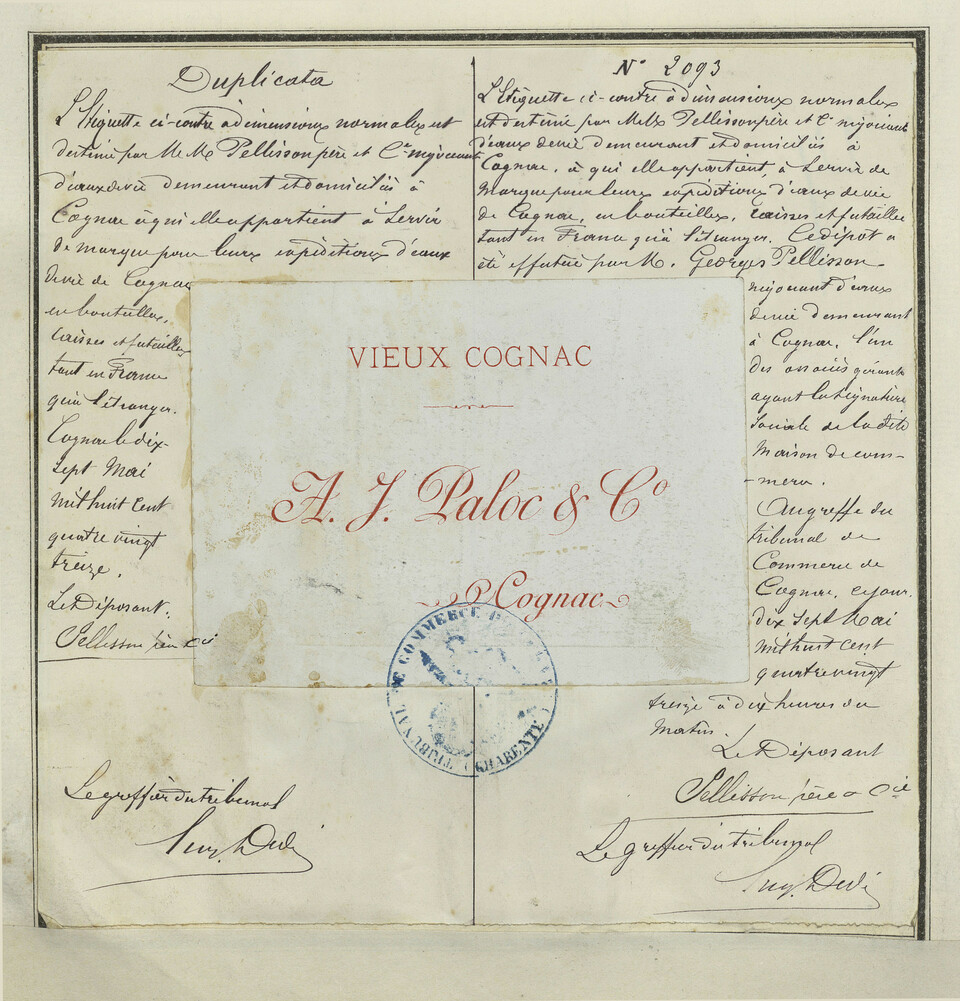 Duplicata
L'Etiquette ci-contre à dimensions normales est
destiné par M.M. Pellisson père et Cie négociants
d'eaux de vie demeurant et domiciliés à
Cognac à qui elle appartient à servir
de marque pour leurs expéditions d'eaux
de vie de Cognac
en bouteilles,
caisses et futailles
tant en France
qu'à l'étranger.
Cognac le dix-
sept Mai
mil huit cent
quatre vingt
treize.
Le Déposant.
Pellisson père & Cie
Le greffier du tribunal
N° 2093
L'Etiquette ci-contre à dimensions normales
est destiné par M.M. Pellisson père et Cie négociants
d'eaux de vie demeurant et domiciliés à
Cognac, à qui elle appartient, à servir de
marque pour leurs expéditions d'eaux de vie
de Cognac, en bouteilles, caisses et futailles
tant en France qu'à l'étranger. Ce dépôt a
été effectué par M. Georges Pellisson
négociant d'eaux
de vie demeurant
à Cognac, l'un
des associés gérants
ayant la signature
sociale de la dite
maison de com-
-merce.
Au greffe du
tribunal de
Commerce de
Cognac, ce jour
dix sept Mai
mil huit cent
quatre vingt
treize à dix heures du
matin.
Le Déposant
Pellisson père & Cie
Le greffier du tribunal
VIEUX COGNAC
A. J. Paloc & Co
Cognac
TRIBUNAL DE COMMERCE
(CHARENTE)